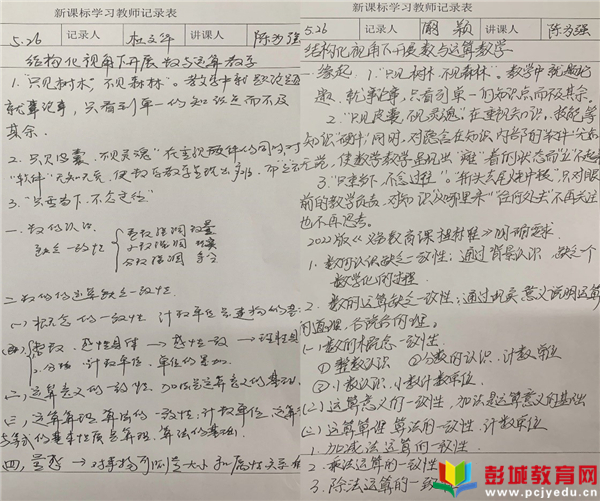 新课标学习教师记录表
5.26 记录人 杜文华 讲课人 陈为强
结构化视角下开展数与运算教学
1. "只见树木,不见森林"。教学中就题论题
就事论事,只看到单一的知识点而不及
其余。
2. 只见皮囊,不见灵魂"在重视硬件的同时,对
3. "只重当下,不念过往"
一. 数的认识
缺乏一致性
整数强调
小数强调
分数强调
二. 数的运算缺乏一致性
(一) 概念的一致性 计数单位
整数:
分数:计数单位,单位的累加
(二) 运算意义的一致性. 加法是运算意义的基础
(三) 运算算理算法的一致性. 计数单位、运算
等式的基本性质是算理、算法的基础.
新课标学习教师记录表
5.26 记录人 周颖 讲课人 陈为强
结构化视角下开展数与运算教学
缘起:1. "只见树木,不见森林"。教学中就题论
题、就事论事,只看到单一的知识点而不及其余。
2. "只见皮囊,不见灵魂"。在重视知识、技能等
知识"硬件"同时,对隐含在知识内部的软件"
使数学教学呈现出"摊"着的状态而"立"不起来
3. "只重当下,不念过程"。"斩头去尾烧中段",只对眼
前的教学负责,对知识"从哪里来""往何处去"不再关注
也不再思考。
2022版《义务教育课程标准》明确要求
1. 数的认识缺乏一致性:通过背景认识,缺乏一个
数学化的过程
2. 数的运算缺乏一致性:通过现实意义说明运算
的道理,各说各的理。
(一) 数的概念一致性
① 整数认识 ② 分数的认识、计数单位
③ 小数认识、小数计数单位
(二) 运算意义的一致性,加法是运算意义的基础
(三) 运算算理算法的一致性,计数单位
1. 加减法运算的一致性
2. 乘法运算的一致性
3. 除法运算的一致
彭城教育网
www.pcjyedu.cn